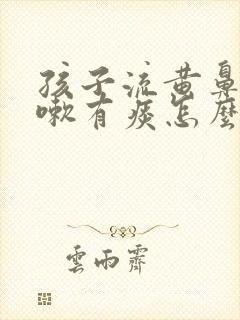 孩子流黄鼻
嗽有痰怎麼
雲雨霽